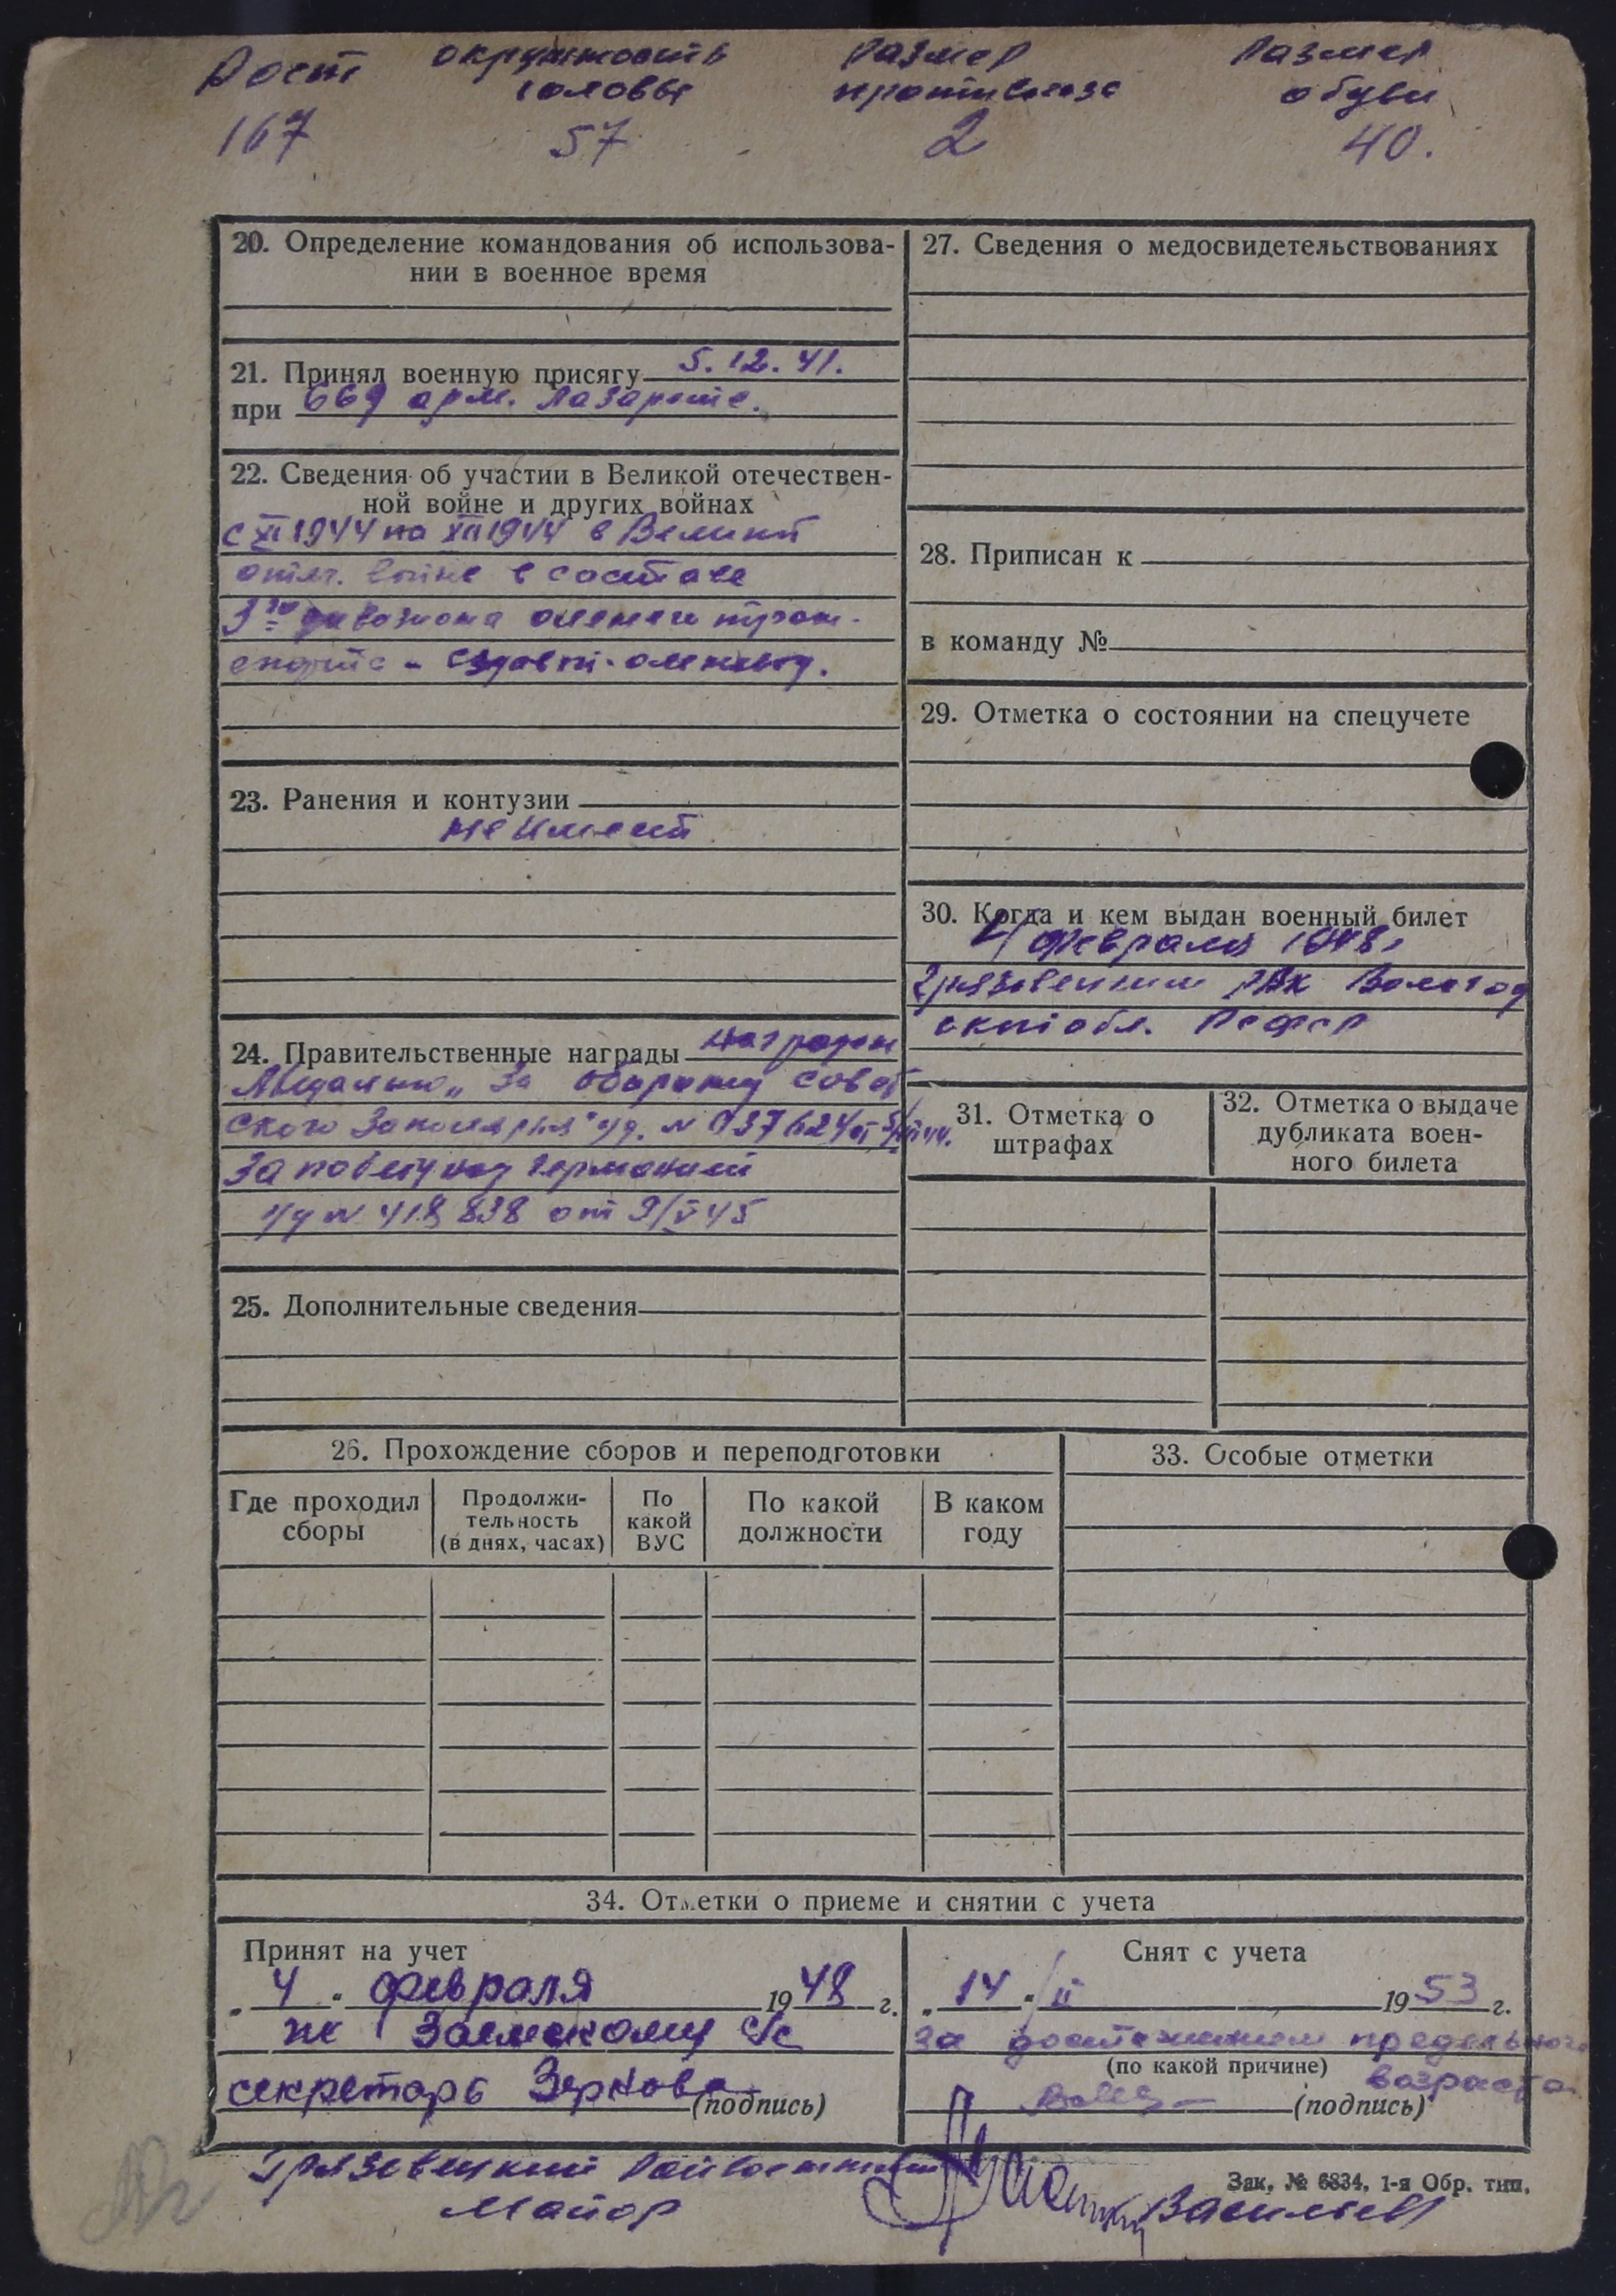 Рост окружность размер размер
головы противогаза обуви
167 57 2 40.
20. Определение командования об использова-
нии в военное время
21. Принял военную присягу 5.12.41.
при 669 арм. лазарете.
22. Сведения об участии в Великой отечествен-
ной войне и других войнах
с XI 1944 по XII 1944 в Великой
отеч. войне в составе
3го дивизиона оленьего тран-
спорта - ездовой-оленевод.
23. Ранения и контузии
не имеет
24. Правительственные награды награжден
Медалью „За оборону совет
ского Заполярья" уд. N 037624 от
За победу над Германией
уд N 418838 от 9/V 45
25. Дополнительные сведения
26. Прохождение сборов и переподготовки
Где проходил сборы
Продолжи-
тельность
(в днях, часах)
По
какой
ВУС
По какой
должности
В каком
году
27. Сведения о медосвидетельствованиях
28. Приписан к
в команду №
29. Отметка о состоянии на спецучете
30. Когда и кем выдан военный билет
4 февраля 1948г
Грязовецким РВК Вологод
ской обл. РСФСР
31. Отметка о
штрафах
32. Отметка о выдаче
дубликата воен-
ного билета
33. Особые отметки
34. Отметки о приеме и снятии с учета
Принят на учет
„4" февраля 1948 г.
по Заемскому с/с
секретарь Зернова
(подпись)
Снят с учета
„14" /II 1953 г.
за достижением предельного
(по какой причине) возраста
(подпись)
Грязовецкий Райвоенком
Майор Васильев
Зак. № 6834. 1-я Обр. тип.